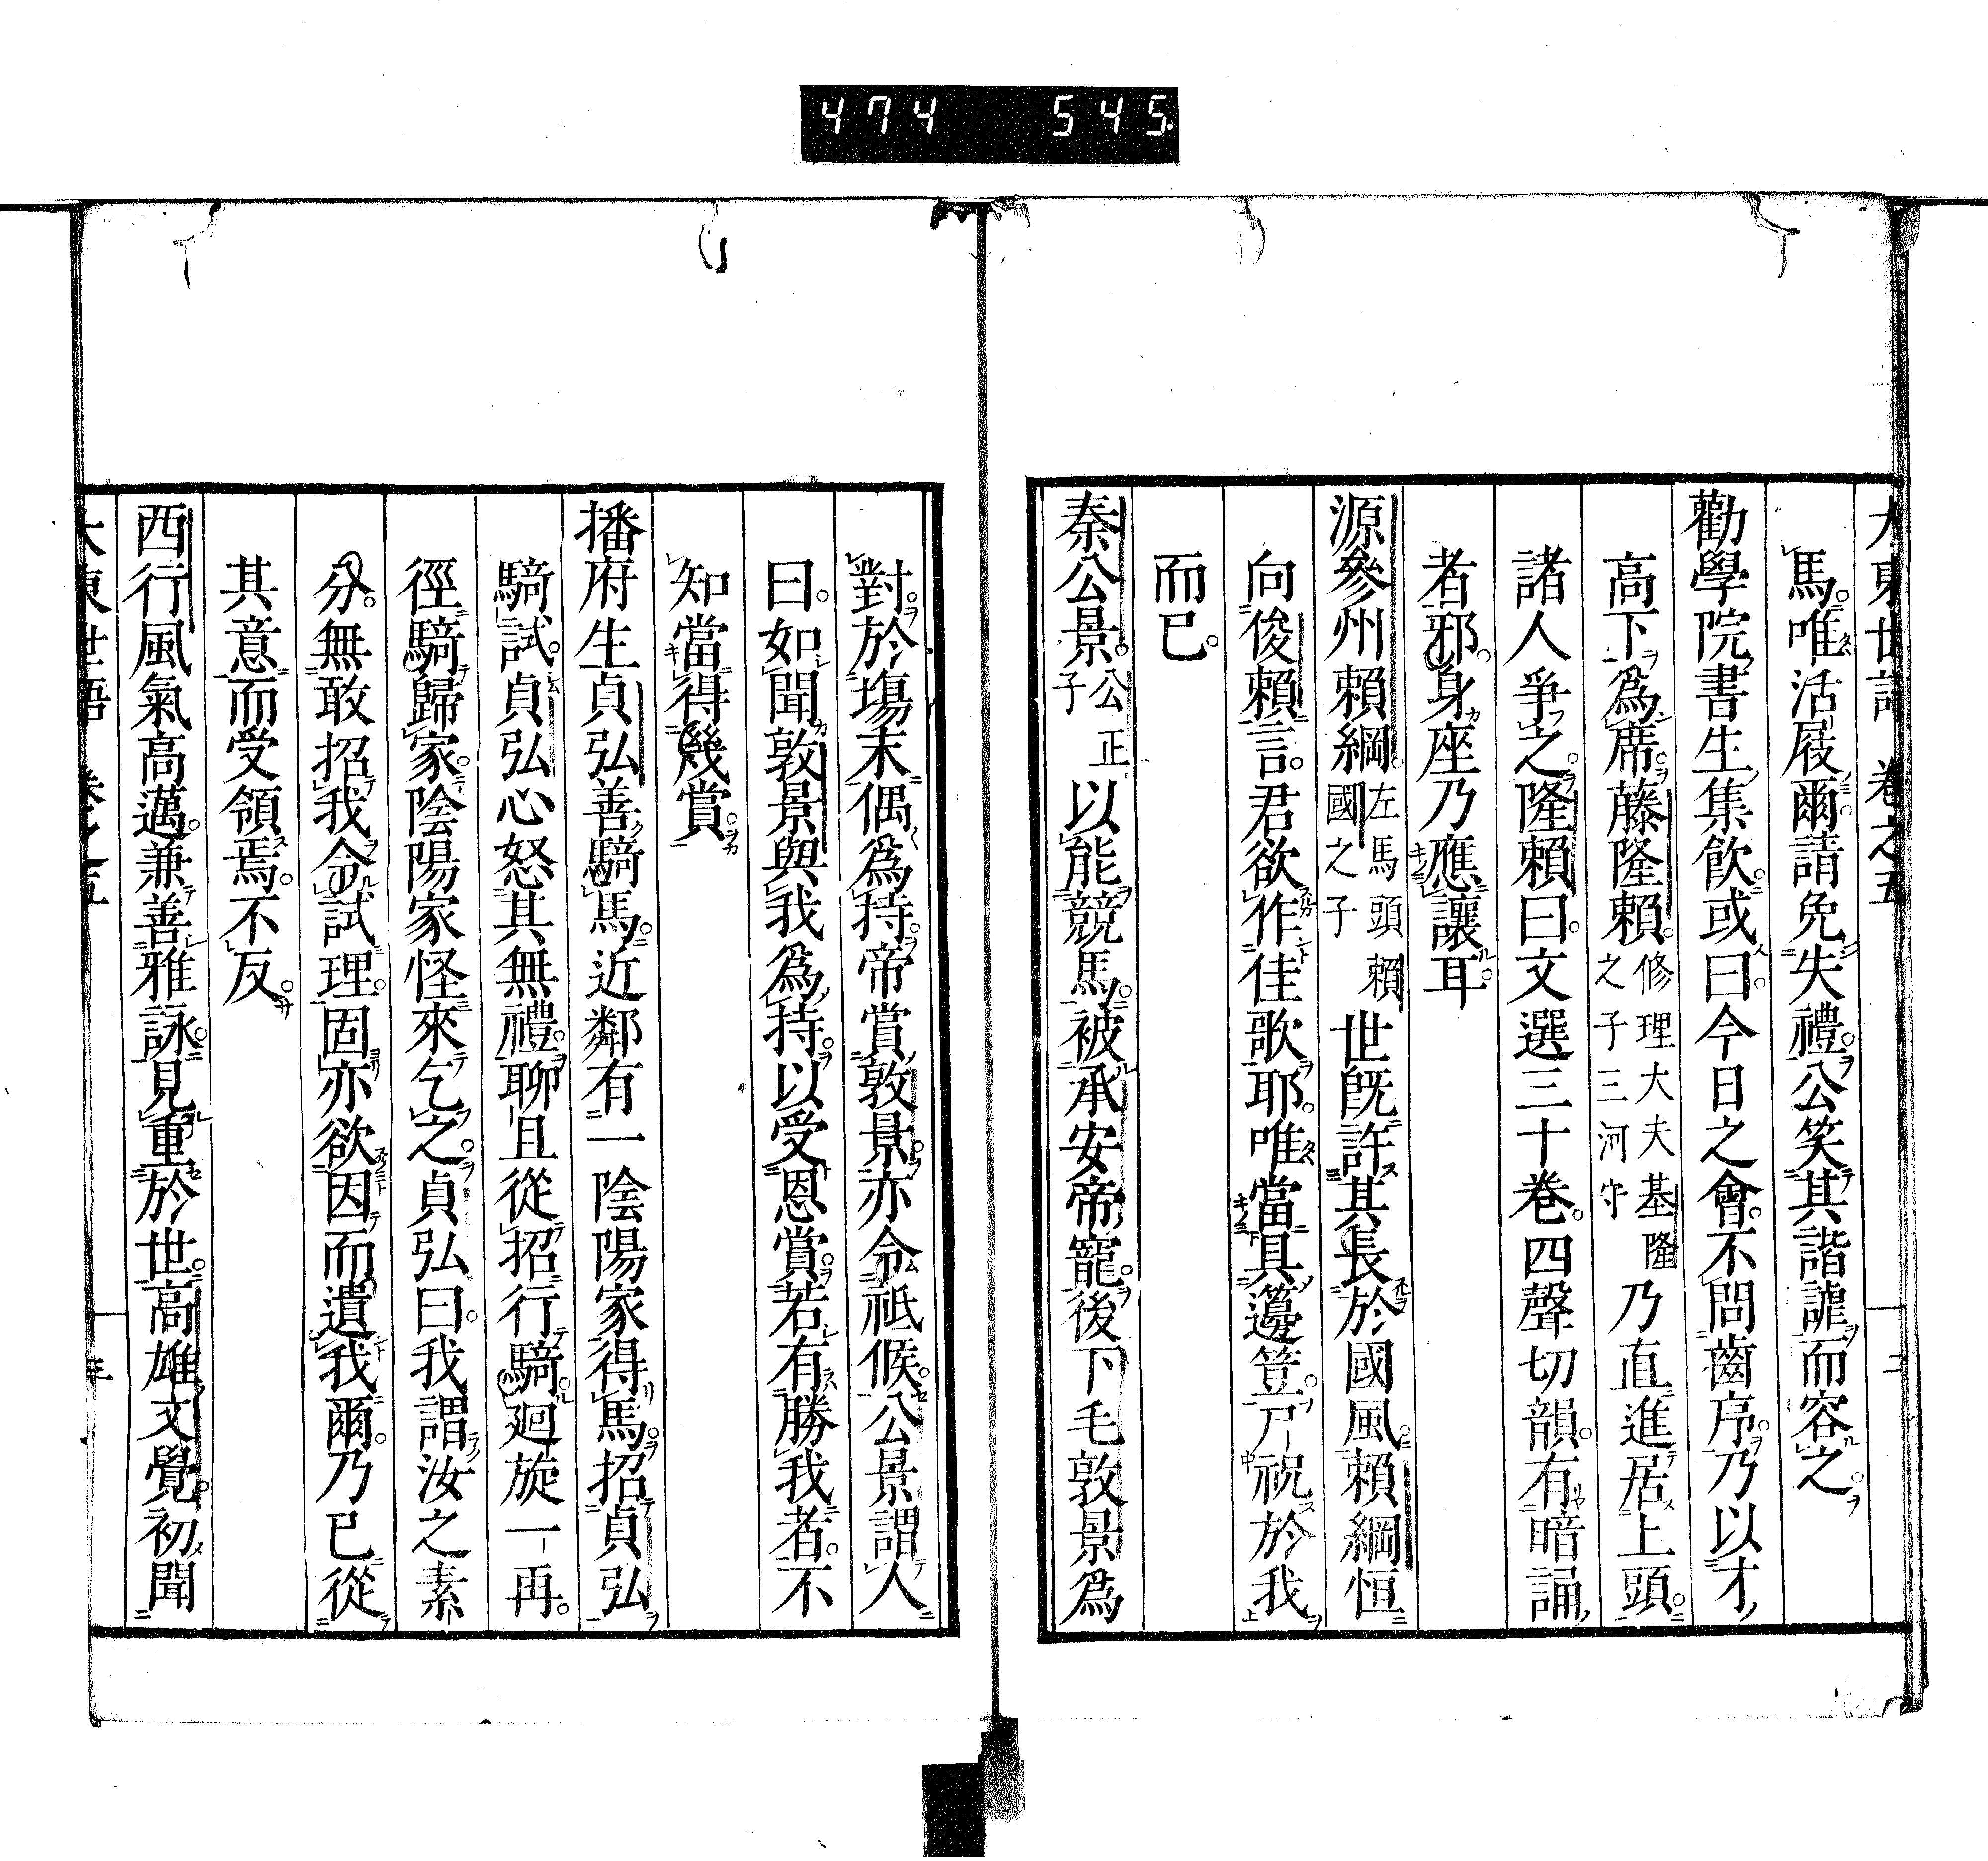 474 545
大東世語 卷之五 二
馬唯活屐爾請免失禮公笑其諧謔而容之
勸學院書生集飲或曰今日之會不問齒序乃以才
高下爲席藤隆賴修理大夫基隆之子三河守乃直進居上頭
諸人爭之隆賴曰文選三十卷四聲切韻有暗誦
者邪身座乃應讓耳
源參州賴綱左馬頭賴國之子世旣許其長於國風賴綱恒
向俊賴言君欲作佳歌耶唯當具籩荳尸祝於我
而已
秦公景公正子以能競馬被承安帝寵後下毛敦景爲
對於塲末偶爲持帝賞敦景亦令祗候公景謂人
曰如聞敦景與我爲持以受恩賞若有勝我者不
知當得幾賞
播府生貞弘善騎馬近鄰有一陰陽家得馬招貞弘
騎試貞弘心怒其無禮聊且從招行騎廻旋一再
徑騎歸家陰陽家怪來乞之貞弘曰我謂汝之素
分無敢招我令試理固亦欲因而遺我爾乃已從
其意而受領焉不反
西行風氣高邁兼善雅詠見重於世高雄文覺初聞
大東世語 卷之五 三